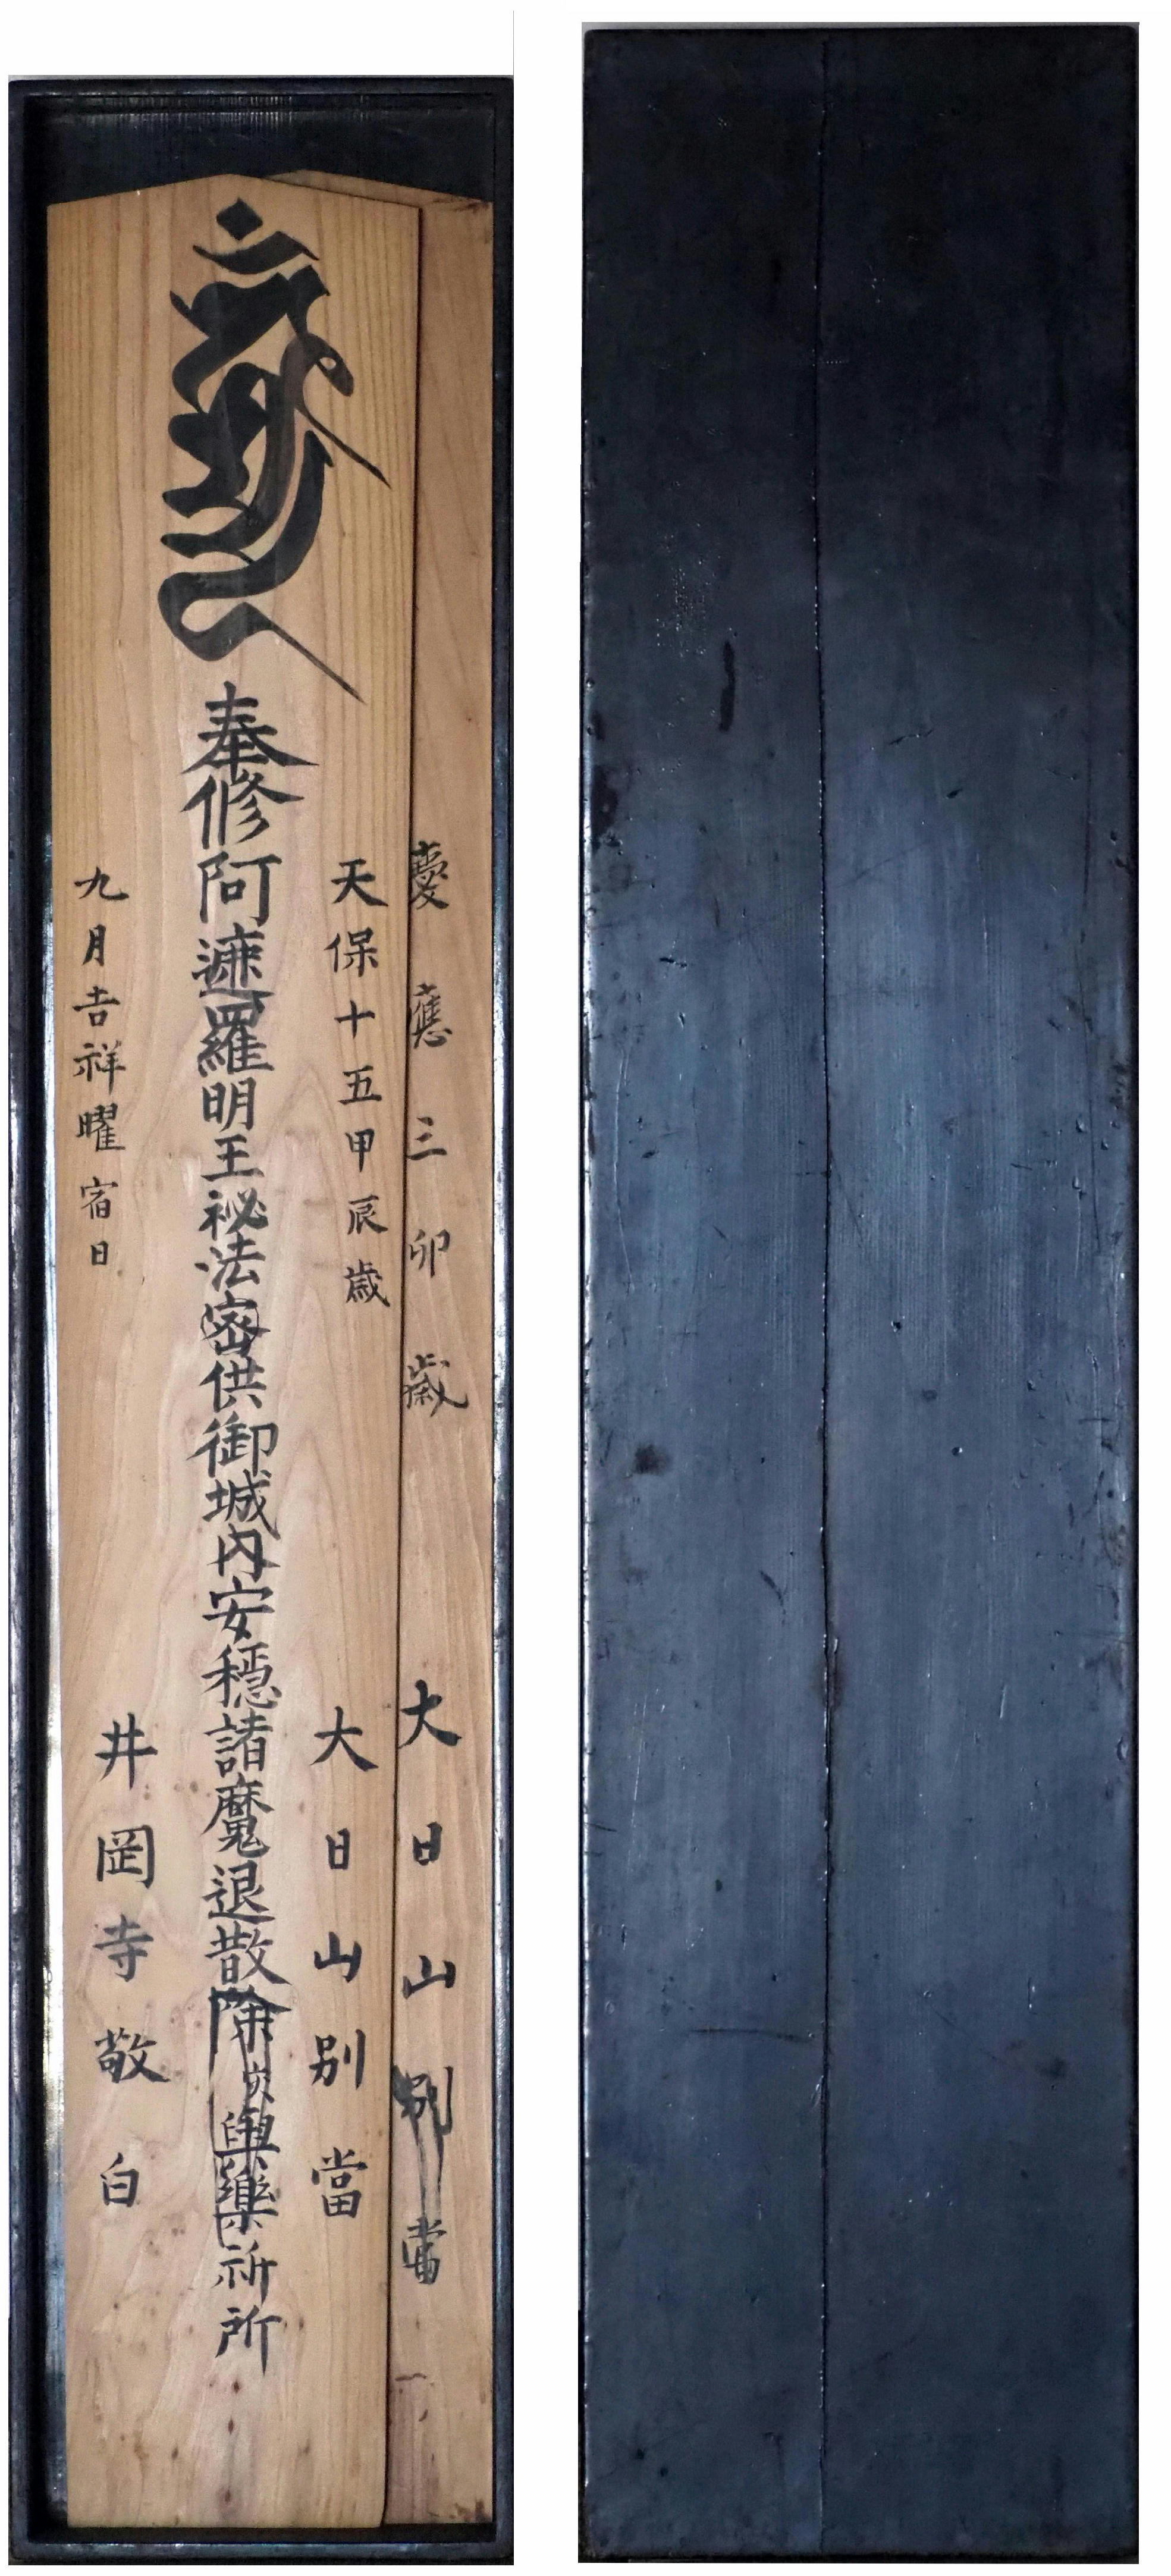 慶應三卯歳 大日山別當
天保十五甲辰歳 大日山別當
奉修阿遮羅明王祕法密供御城内安穩諸魔退散除災與樂祈所
九月吉祥曜宿日 井岡寺敬白